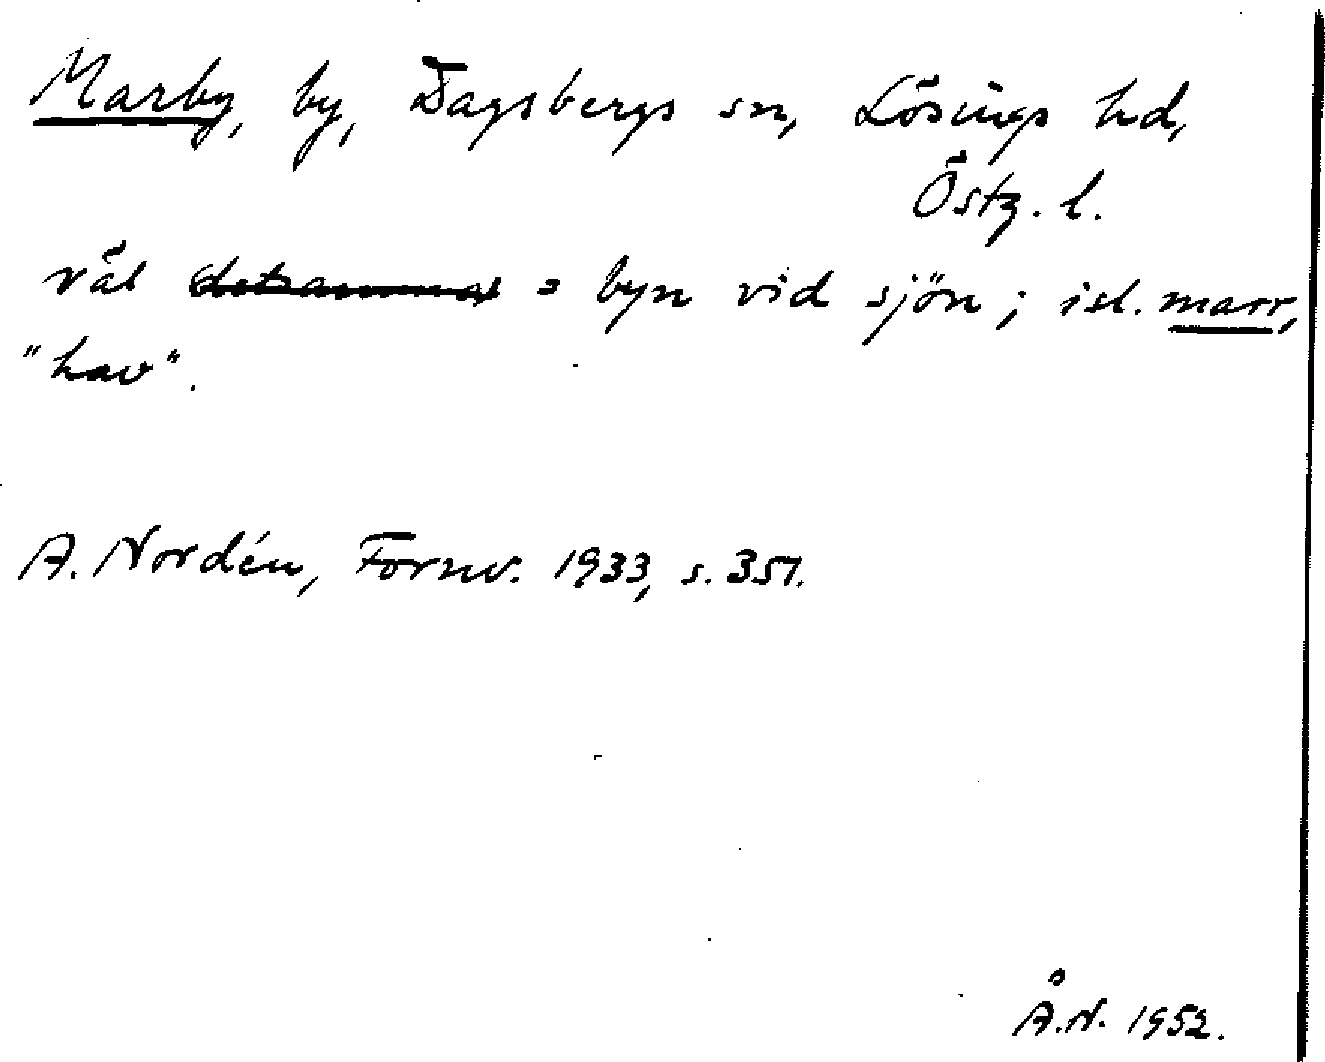 Marby, by, Dagsbergs sn, Lösings hd,
Östg. l.
väl = byn vid sjön; isl. marr,
"hav".
A. Nordén, Fornv. 1933, s. 351.
Å.N. 1952.